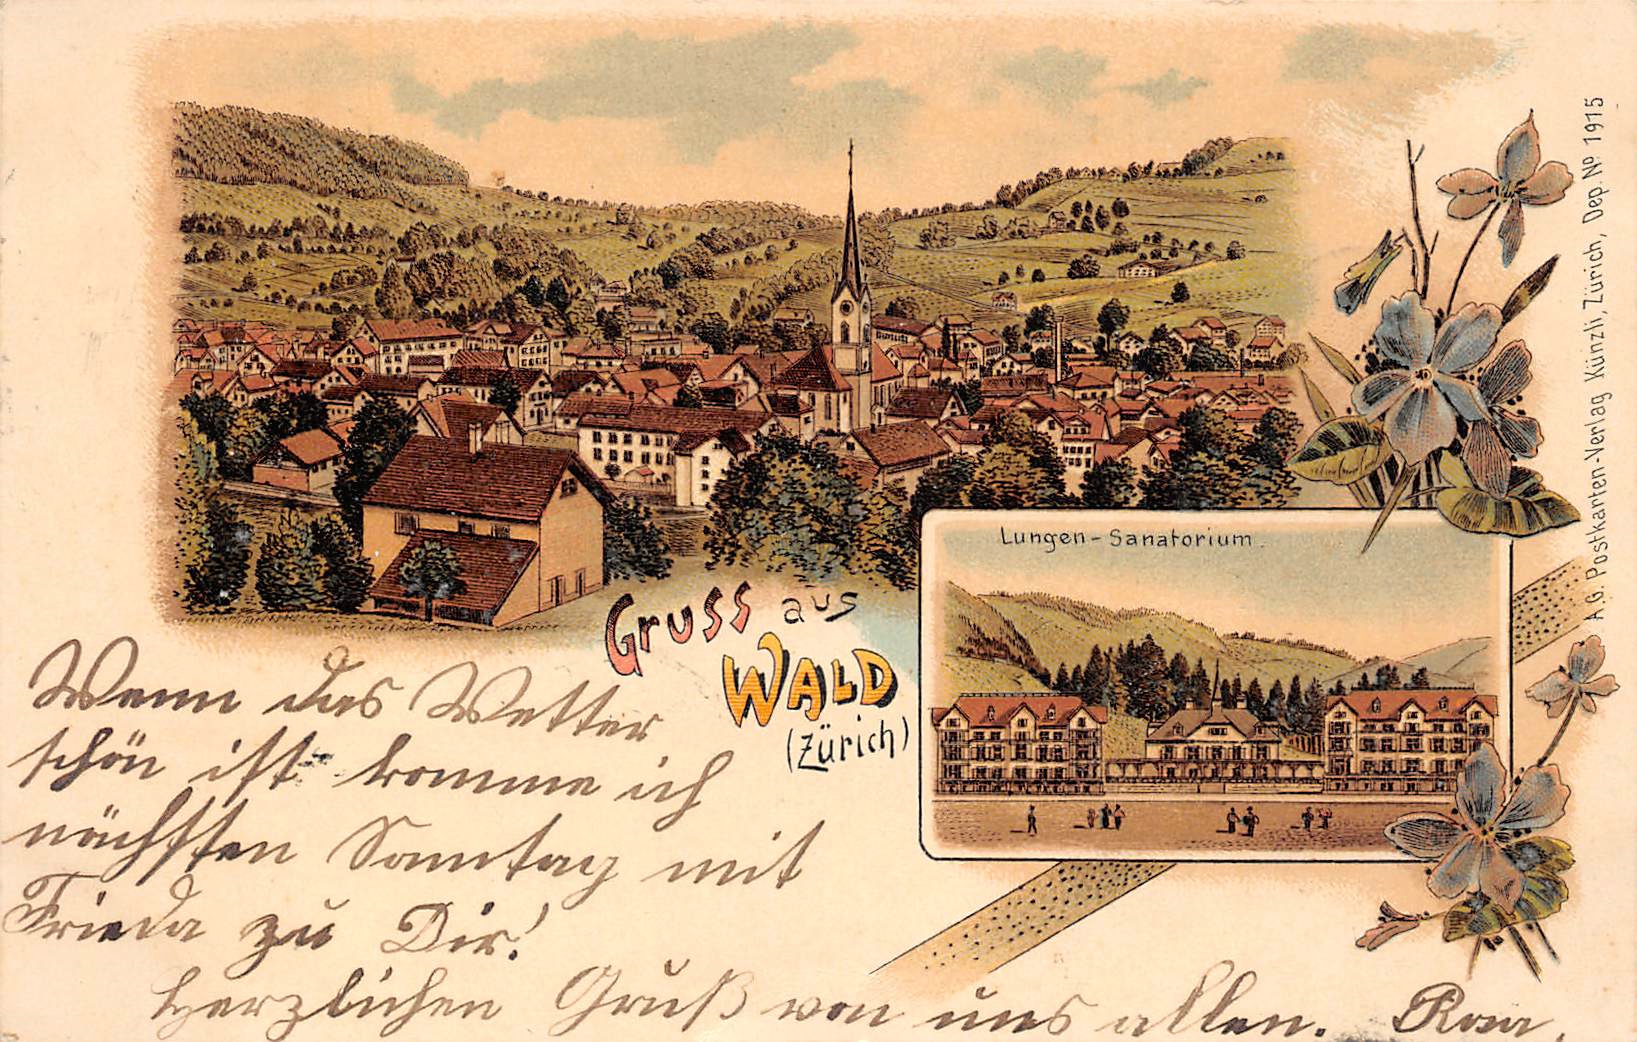 A.G. Postkarten-Verlag Künzli, Zürich, Dep. No 1915
Lungen-Sanatorium.
Gruss aus
WALD
(Zürich)
Wenn das Wetter
schön ist komme ich
nächsten Sonntag mit
Frieda zu Dir!
Herzlichen Gruß von uns allen. Rosa.